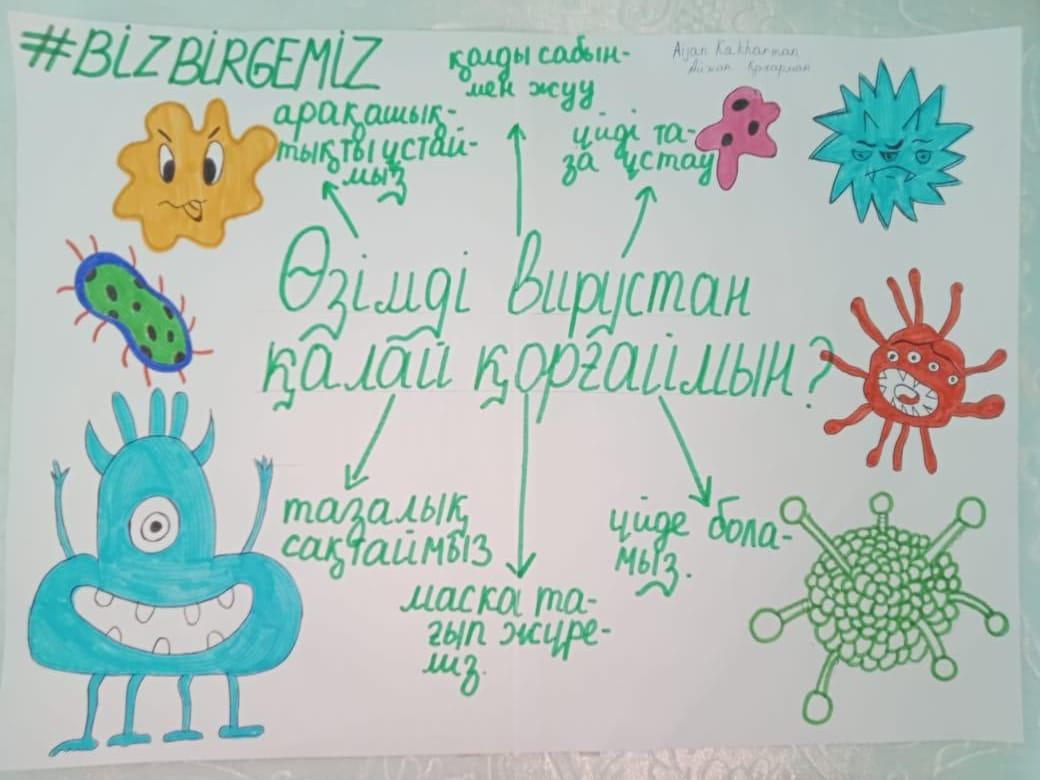 #BIZBIRGEMIZ
қолды сабын-
мен жуу
Aijan Kakharman
Айжан Қахарман
арақашық-
тықты ұстай-
мыз
үйді та-
за ұстау
Өзімді вирустан
қалай қорғаймын?
тазалық
сақтаймыз
үйде бола-
мыз.
маска та-
ғып жүре-
миз.